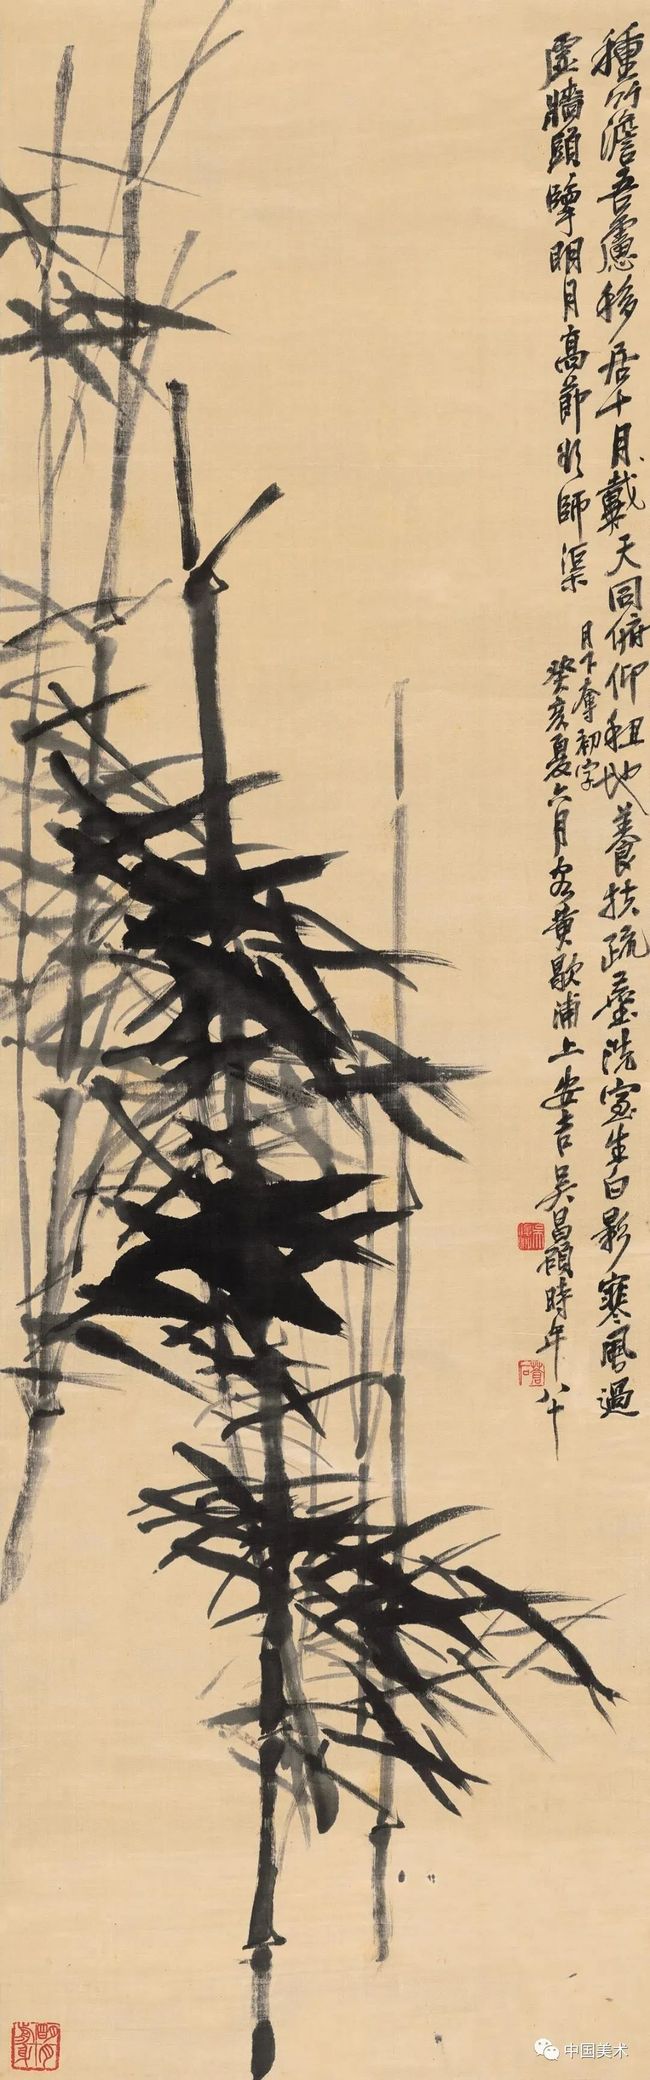 種竹澹吾慮移居十月戴天同俯仰租地養扶疏塵洗室生白影寒風過
虛牆頭擎明月高節師渠
月下奪初字
癸亥夏六月客黃歇浦上安吉吳昌碩時年八十
明月前身
中国美术